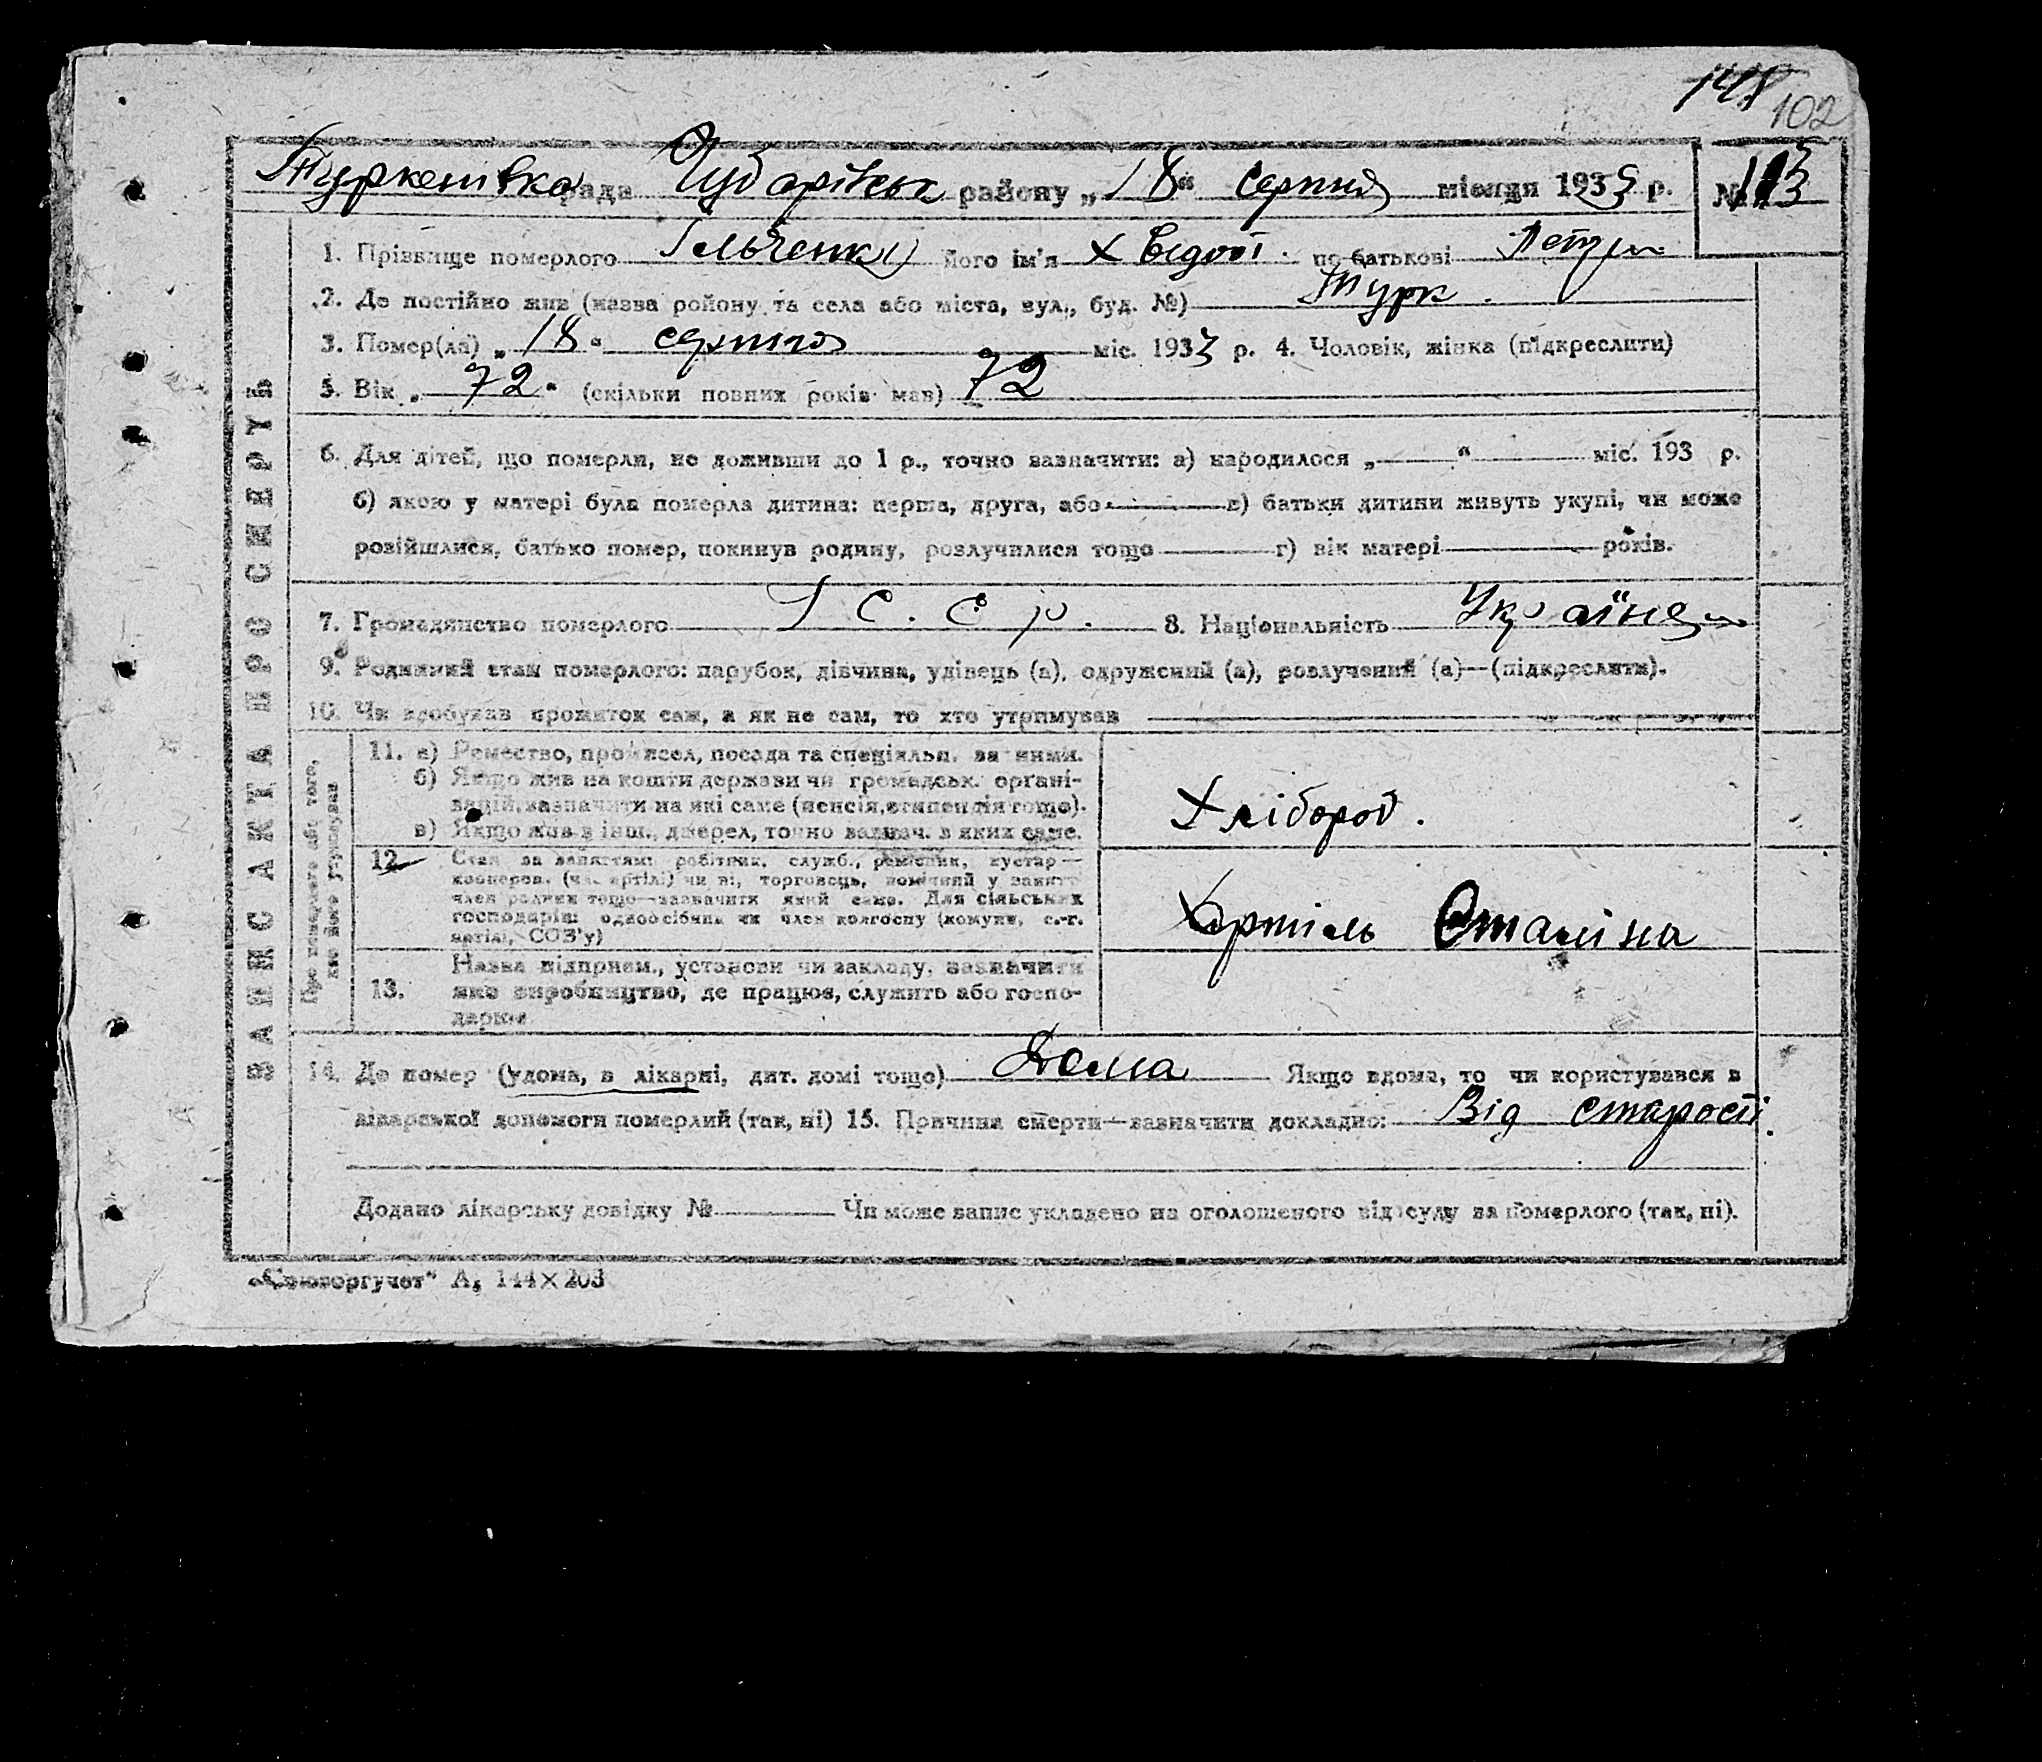 102
Туркенівка рада Чубарівськ района „18“ серпня місяця 1933 р. № 113
ЗАПИС АКТА ПРО СМЕРТЬ
1. Прізвище померлого Ільченко його ім'я Хведот. по батькові Петров
2. Де постійно жив (назва району та села або міста, вул., буд. №) Турк.
3. Помер(ла) „18“ серпня міс. 1933 р. 4. Чоловік, жінка (підкреслити)
5. Вік „72“ (скільки повних років мав) 72
6. Для дітей, що померли, не доживши до 1 р., точно зазначити: а) народилося „ “ міс. 193 р.
б) якою у матері була померла дитина: перша, друга, або в) батьки дитини живуть укупі, чи може
розійшлися, батько помер, покинув родину, розлучилися тощо г) вік матері років.
7. Громадянство померлого С. С. р. 8. Національність Україне
9. Родинний стан померлого: парубок, дівчина, удівець (а), одружений (а), розлучений (а)—(підкреслити).
10. Чи здобував прожиток сам, а як не сам, то хто утримував
Про померлого або того, хто його утримував
11. а) Ремество, промисел, посада та спеціяльн. за ними.
б) Якщо жив на кошти держави чи громадськ. органі-
зацій, зазначити на які саме (пенсія, стипендія тощо).
в) Якщо жив з інш. джерел, точно зазнач. з яких саме.
Хлібороб.
12. Стан за заняттям: робітник, служб., ремісник, кустар—
кооперов. (чл. артілі) чи ні, торговець, помічний у занятт
член родини тощо—зазначити який саме. Для сільських
господарів: одноосібник чи член колгоспу (комуни, с.-г.
артілі, СОЗ'у)
Артіль Сталіна
13. Назва підприєм., установи чи закладу, зазначити
яке виробництво, де працює, служить або госпо-
дарює
14. Де помер (удома, в лікарні, дит. домі тощо) Дома Якщо вдома, то чи користувався з
лікарської допомоги померлий (так, ні) 15. Причина смерти—зазначити докладно: Від старості.
Додано лікарську довідку № Чи може запис укладено на оголошеного від суду за померлого (так, ні).
„Союзоргучет“ А, 144×203